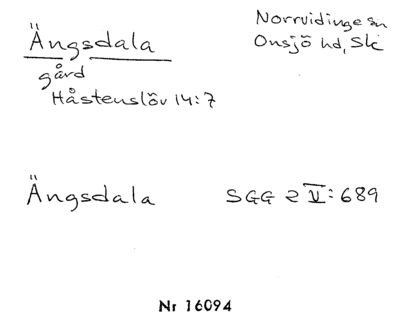 Ängsdala
Norrvidinge sn
Onsjö hd, Sk
gård
Håstenslöv 14:7
Ängsdala SGG 2 V:689
Nr 16094